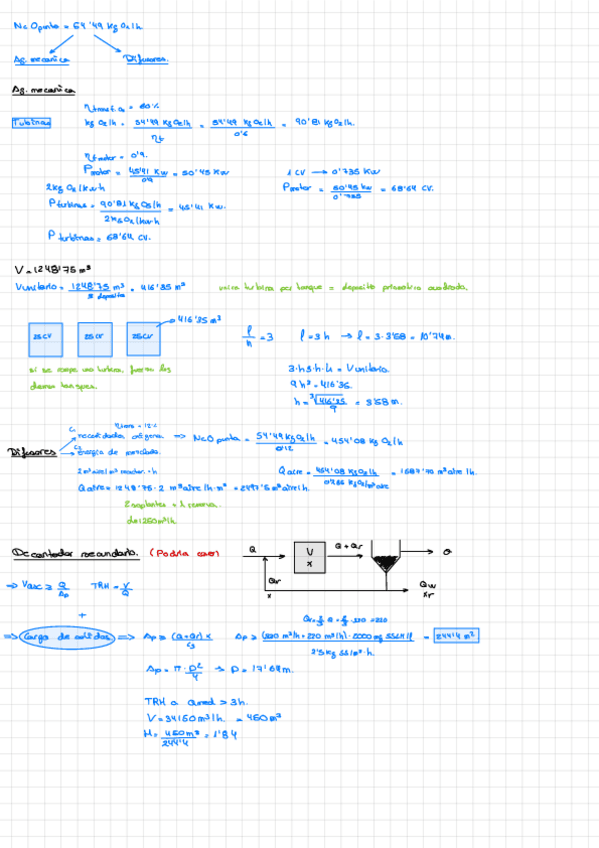 NcO punta = 54'49 kg O₂/h
Ag. mecánica
Difusores.
Ag. mecánica
η transf. O₂ = 60%
Turbinas
kg O₂/h = 54'49 kg O₂/h / ηt = 54'49 kg O₂/h / 0'6 = 90'81 kg O₂/h.
η motor = 0'9.
P motor = 45'41 kW / 0'9 = 50'45 kW
1 CV → 0'735 kW
2 kg O₂/kW·h
P motor = 50'45 kW / 0'735 = 68'64 CV.
P turbinas = 90'81 kg O₂/h / 2 kg O₂/kW·h = 45'41 kW.
P turbinas = 68'64 CV.
V = 1248'75 m³
V unitario = 1248'75 m³ / 3 depósitos = 416'25 m³
turbina por tanque = depósito cuadrada.
416'25 m³
25 CV
25 CV
25 CV
l/h = 3
l = 3h → l = 3·3'58 = 10'74 m.
si se rompe una turbina, los demás tanques.
3·h·3·h·h = V unitario.
9h³ = 416'25.
h = ³√416'25/9 = 3'58 m.
Difusores
necesidades oxígeno
=> NcO punta = 54'49 kg O₂/h / 0'12 = 454'08 kg O₂/h
energía de mezclado.
2 m³ aire/m³ reactor · h
Q aire = 454'08 kg O₂/h
m³ aire/h.
Q aire = 1248'75 · 2 m³ aire/h·m³ = 2497'5 m³ aire/h.
2 soplantes + 1 reserva
de 1250 m³/h.
Decantador secundario. (Podría caer)
Q
V
X
Q + Qr
Q
Qr
X
Qw
Xr
=> Vasc ≥ Q/Ap
TRH = V/Q
+
=> Carga de sólidos => Ap ≥ (Q+Qr) X / Cs
= 244'4 m²
Ap = π · D²/4 → D = 17'64 m.
TRH a Qmed > 3h.
= 450 m³
H = 450 m³ / 244'4 = 1'84